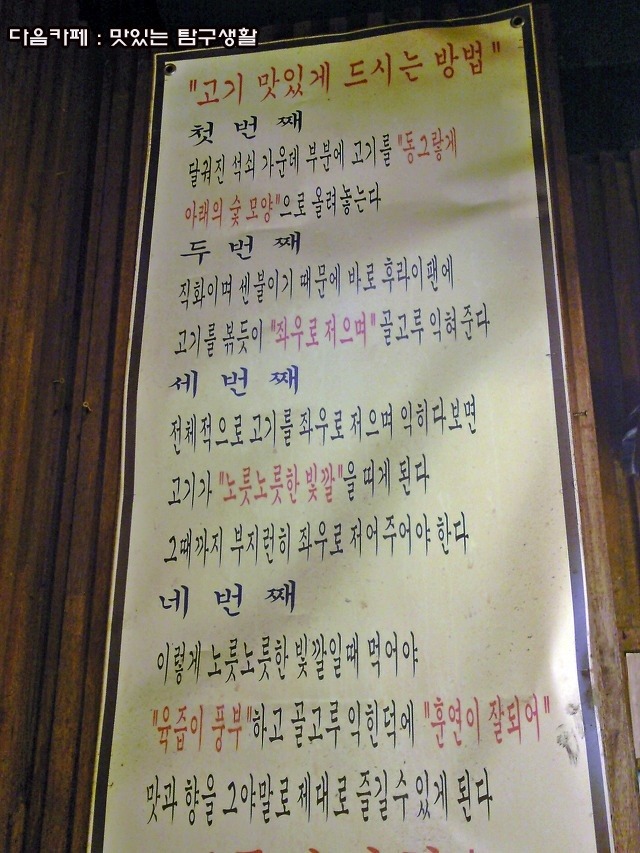 다음카페 : 맛있는 탐구생활
"고기 맛있게 드시는 방법"
첫 번 째
달궈진 석쇠 가운데 부분에 고기를 "동그랗게
아래의 숯 모양"으로 올려놓는다
두 번 째
직화이며 센불이기 때문에 바로 후라이팬에
고기를 볶듯이 "좌우로 저으며" 골고루 익혀 준다
세 번 째
전체적으로 고기를 좌우로 저으며 익히다보면
고기가 "노릇노릇한 빛깔"을 띠게 된다
그때까지 부지런히 좌우로 저어주어야 한다
네 번 째
이렇게 노릇노릇한 빛깔일때 먹어야
"육즙이 풍부"하고 골고루 익힌덕에 "훈연이 잘되어"
맛과 향을 그야말로 제대로 즐길수 있게 된다